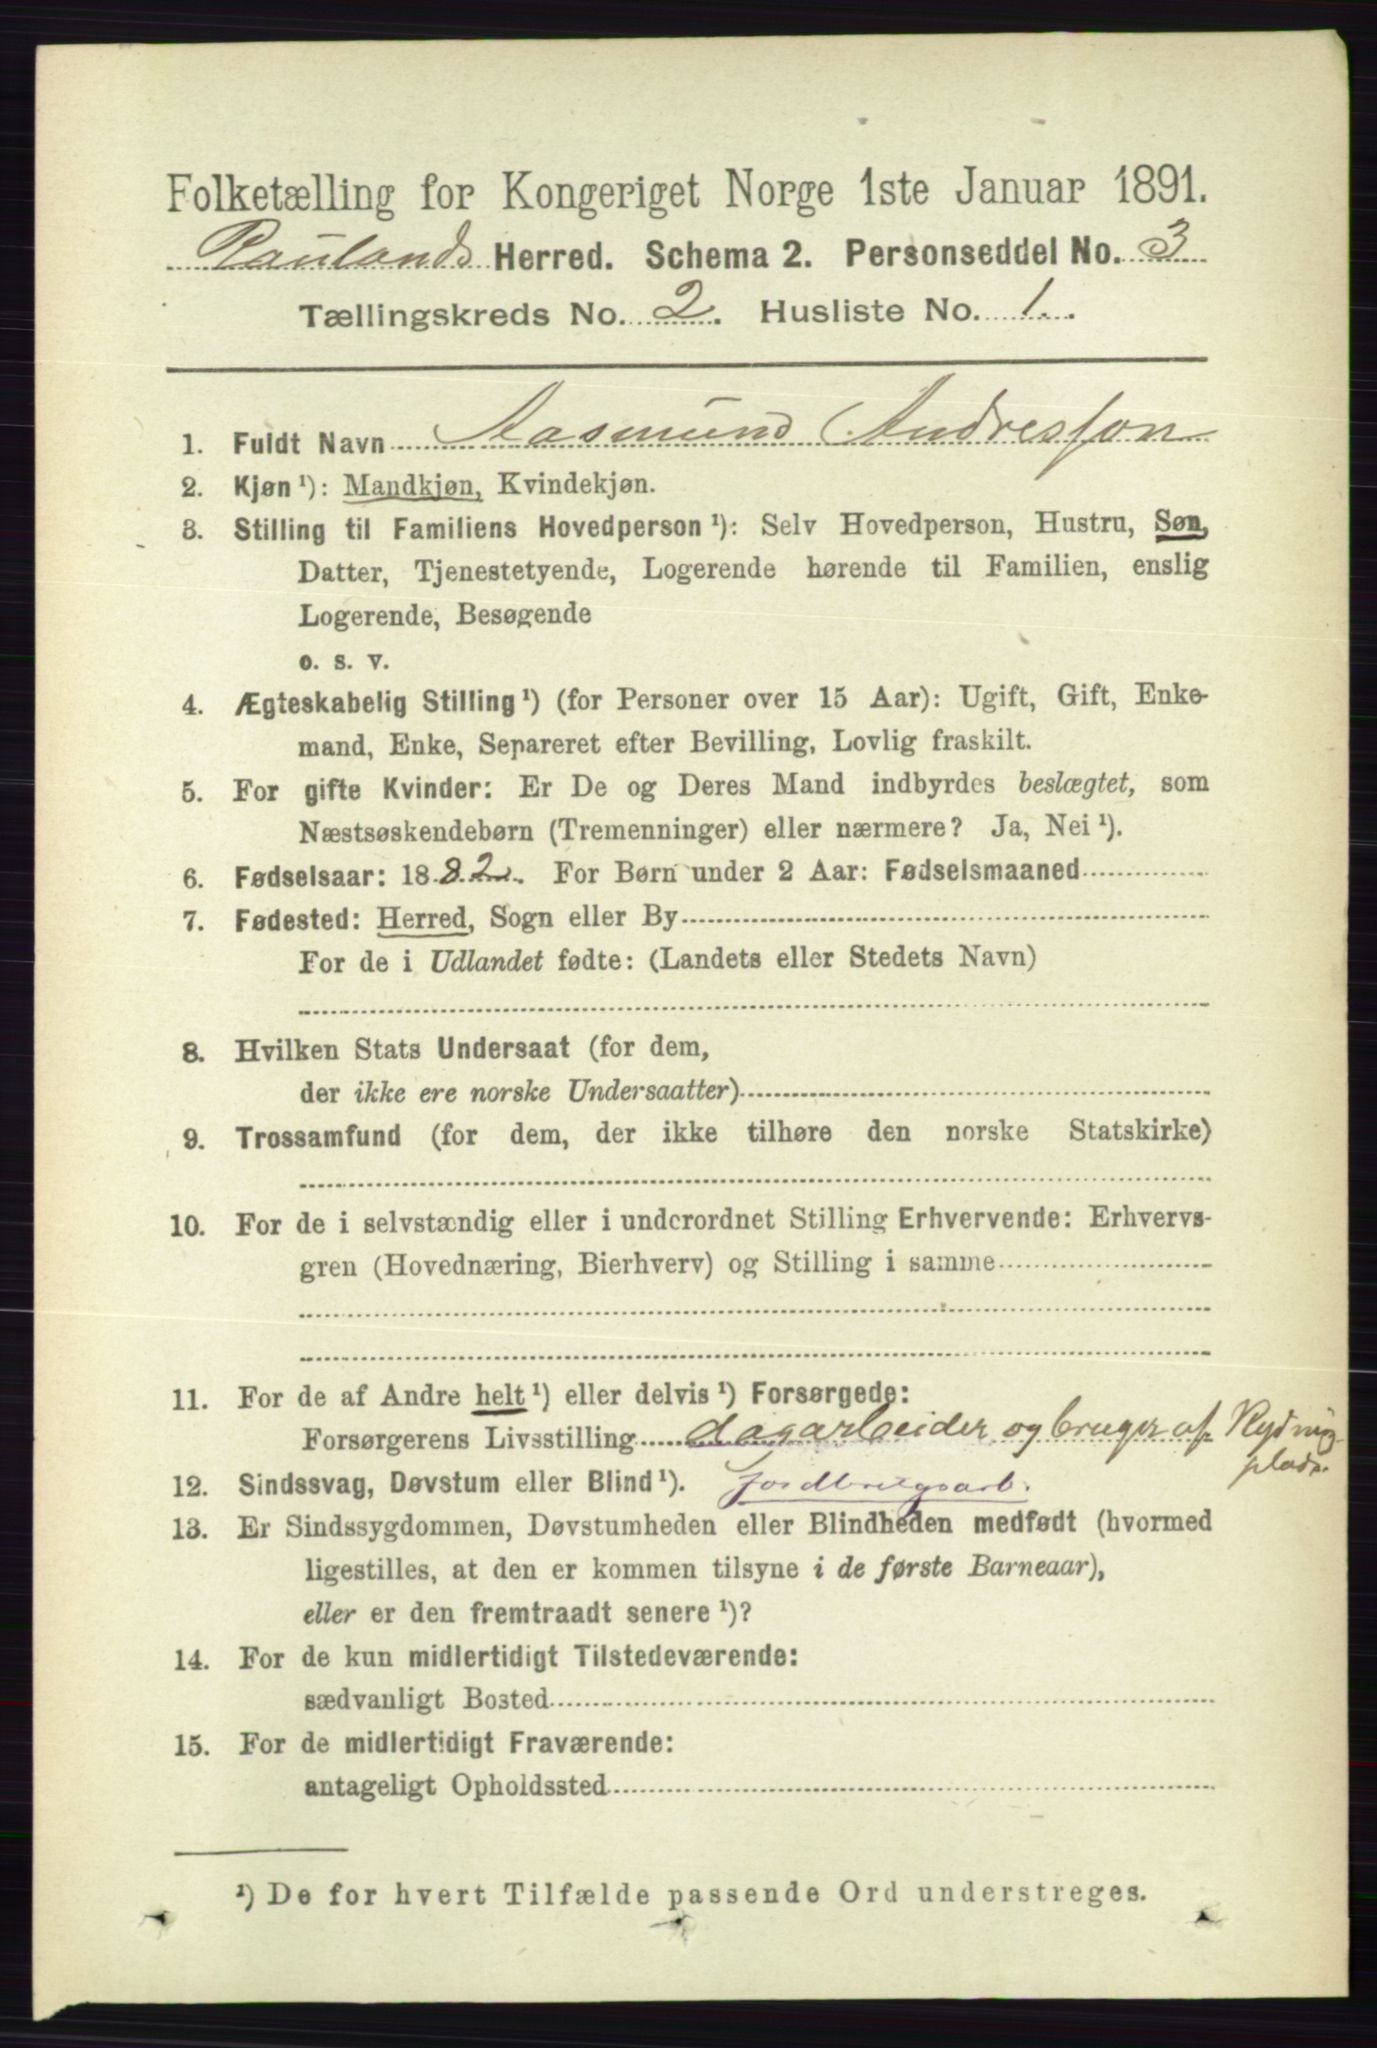 Folketælling for Kongeriget Norge 1ste Januar 1891.
Raulands Herred. Schema 2. Personseddel No. 3
Tællingskreds No. 2. Husliste No. 1.
1. Fuldt Navn Aasmund Andresson
2. Kjøn ¹): Mandkjøn, Kvindekjøn.
3. Stilling til Familiens Hovedperson ¹): Selv Hovedperson, Hustru, Søn,
Datter, Tjenestetyende, Logerende hørende til Familien, enslig
Logerende, Besøgende
o. s. v.
4. Ægteskabelig Stilling ¹) (for Personer over 15 Aar): Ugift, Gift, Enke-
mand, Enke, Separeret efter Bevilling, Lovlig fraskilt.
5. For gifte Kvinder: Er De og Deres Mand indbyrdes beslægtet, som
Næstsøskendebørn (Tremenninger) eller nærmere? Ja, Nei ¹).
6. Fødselsaar: 1882. For Børn under 2 Aar: Fødselsmaaned
7. Fødested: Herred, Sogn eller By
For de i Udlandet fødte: (Landets eller Stedets Navn)
8. Hvilken Stats Undersaat (for dem,
der ikke ere norske Undersaatter)
9. Trossamfund (for dem, der ikke tilhøre den norske Statskirke)
10. For de i selvstændig eller i underordnet Stilling Erhvervende: Erhvervs-
gren (Hovednæring, Bierhverv) og Stilling i samme
11. For de af Andre helt ¹) eller delvis ¹) Forsørgede:
Forsørgerens Livsstilling dagarbeider og bruger af Rydnings
plads.
12. Sindssvag, Døvstum eller Blind ¹). jordbrugsarb.
13. Er Sindssygdommen, Døvstumheden eller Blindheden medfødt (hvormed
ligestilles, at den er kommen tilsyne i de første Barneaar),
eller er den fremtraadt senere ¹)?
14. For de kun midlertidigt Tilstedeværende:
sædvanligt Bosted
15. For de midlertidigt Fraværende:
antageligt Opholdssted
¹) De for hvert Tilfælde passende Ord understreges.